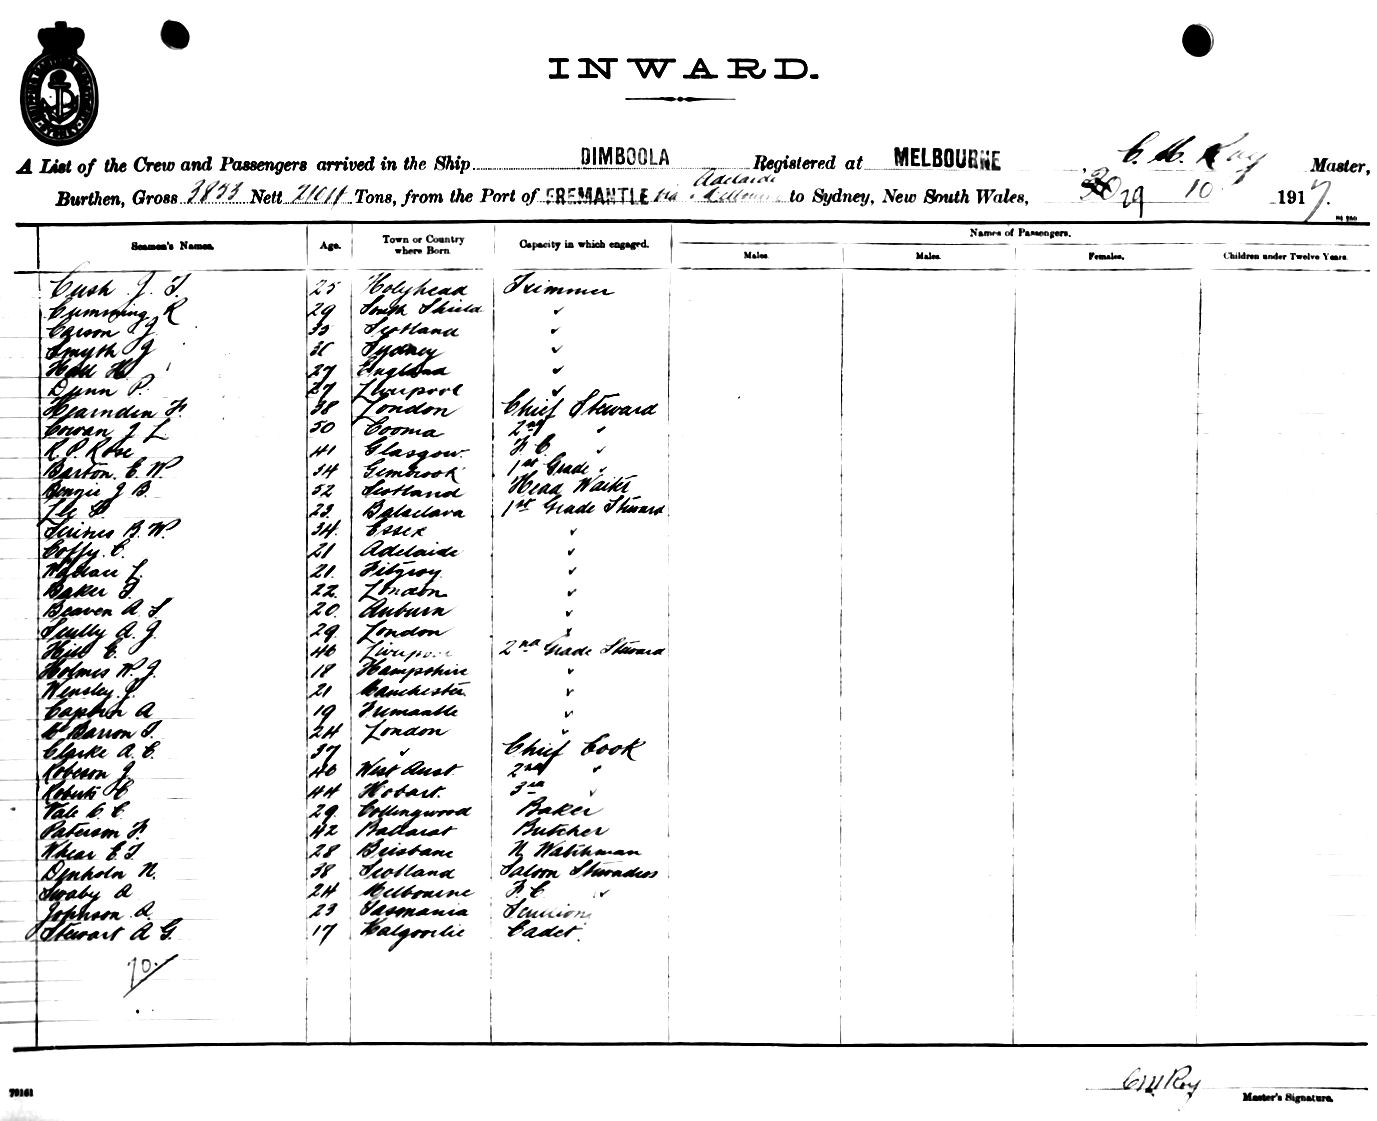 INWARD.
A List of the Crew and Passengers arrived in the Ship DIMBOOLA Registered at MELBOURNE C. M. Roy Master,
Burthen, Gross 3833 Nett Tons, from the Port of FREMANTLE via Adelaide Melbourne to Sydney, New South Wales, 29 10 1917.
Seamen's Names. Age. Town or Country where Born. Capacity in which engaged. Names of Passengers.
Males. Males. Females. Children under Twelve Years.
Cush J. T. 25 Holyhead Trimmer
Cumming R 29 South Shield "
Carson J 33 Scotland "
Smyth J Sydney "
Hall H 27 England "
Dunn P. 27 Liverpool "
Hearnden F. 38 London Chief Steward
Cowan J L 50 Cooma 2nd "
R. P. Rose 41 Glasgow F. C. "
Barton E. W. 34 Gembrook 1st Grade "
J B. 52 Scotland Head Waiter
Lee 23 Balaclava 1st Grade Steward
B. W. 34 Essex "
Coffy C. 21 Adelaide "
Wallace L. 21 Fitzroy "
Baker T. 22 London "
Beaven A S. 20 Auburn "
Scully A. J. 29 London "
Hill E. 46 Liverpool 2nd Grade Steward
Holmes W. J. 18 Hampshire "
Wensley J. 21 Manchester "
A 19 Fremantle "
Barron T. 24 London "
Clarke A. E. 37 " Chief Cook
Robeson J 40 West Aust. 2nd "
Roberts C 44 Hobart. 3rd "
Vale C. C. 29 Collingwood Baker
Paterson F. 42 Ballarat Butcher
Whear E. T. 28 Brisbane N. Watchman
Denholm N. 38 Scotland Saloon Stewardess
Swaby A 24 Melbourne F. C "
Johnson A. 23 Tasmania Scullion
Stewart A G. 17 Kalgoorlie Cadet.
70.
C M Roy
79161 Master's Signature.